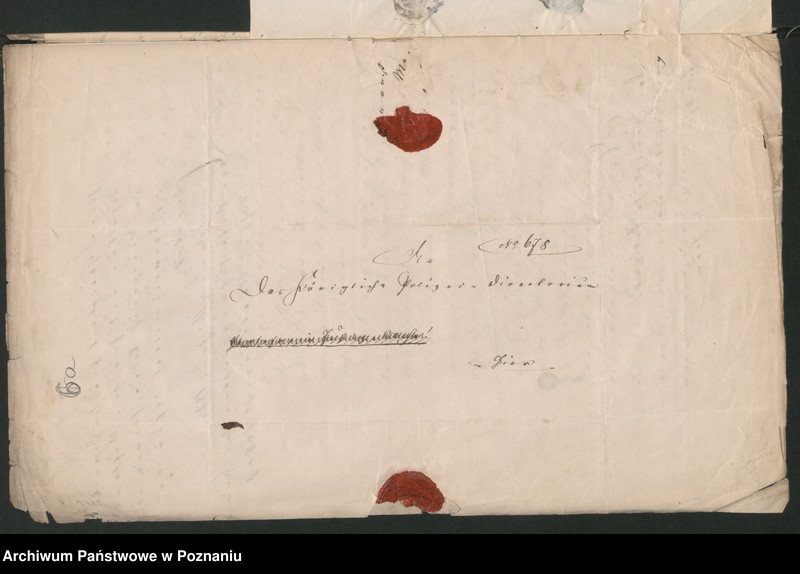 No 678
An
Das Königliche Polizei-Directorium
Hier
6a
Archiwum Państwowe w Poznaniu